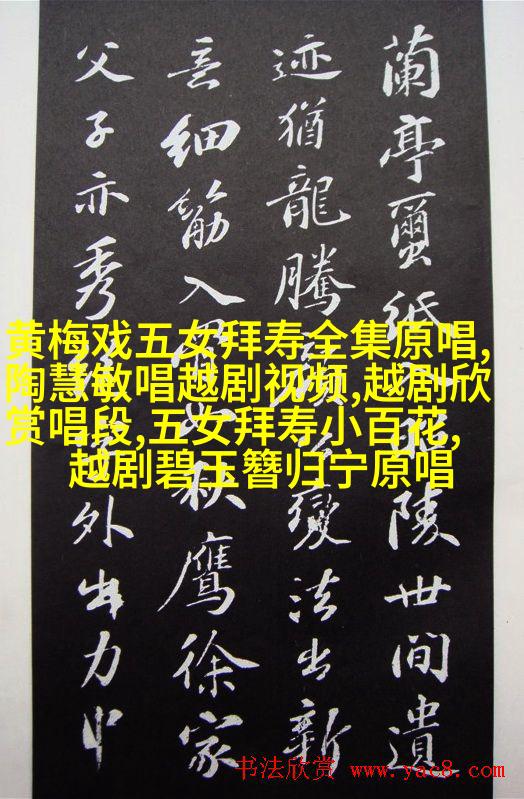 蘭亭蠒紙入昭陵世間遺
迹猶龍騰顏公變法出新
意細筋入骨如秋鷹徐家
父子亦秀絕字外出力中
黄梅戏五女拜寿全集原唱,
陶慧敏唱越剧视频,越剧欣
赏唱段,五女拜寿小百花,
越剧碧玉簪归宁原唱
书法欣赏 www.yac8.com